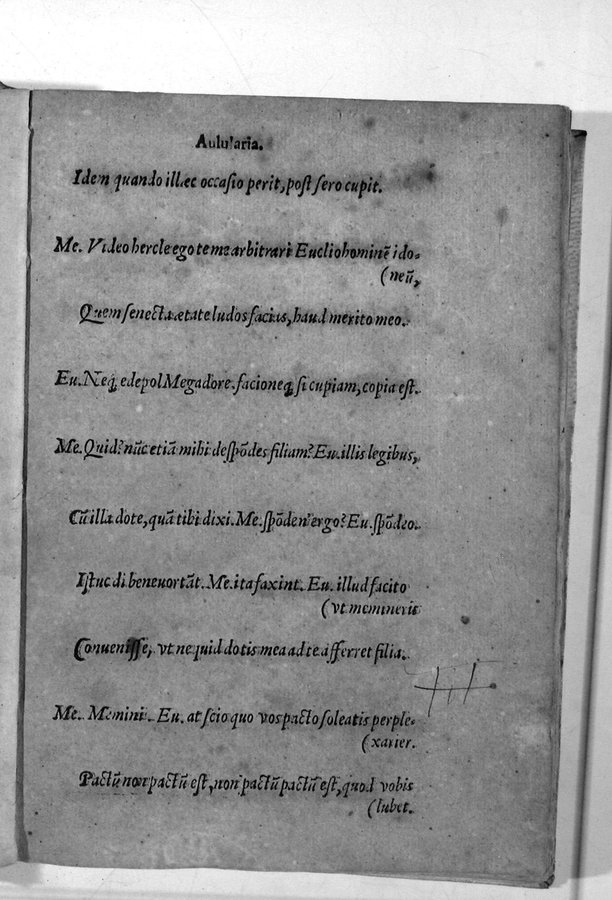 Aulularia.
Idem quando illæc occasio perit, post sero cupit.
Me. Video hercle ego te me arbitrari Euclio hominẽ ido-
(neũ,
Quem senecta ætate ludos facias, haud merito meo.
Eu. Neq; edepol Megadore. facio neq; si cupiam, copia est.
Me. Quid? nũc etiã mihi despõdes filiam? Eu. illis legibus,
Cũ illa dote, quã tibi dixi. Me. spõden' ergo? Eu. spõdeo.
Istuc di bene uortãt. Me. ita faxint. Eu. illud facito
(vt memineris
Conuenisse, vt ne quid dotis mea ad te afferret filia.
Me. Memini. Eu. at scio quo vos pacto soleatis perple-
(xarier.
Pactũ non pactũ est, non pactũ pactũ est, quod vobis
(lubet.